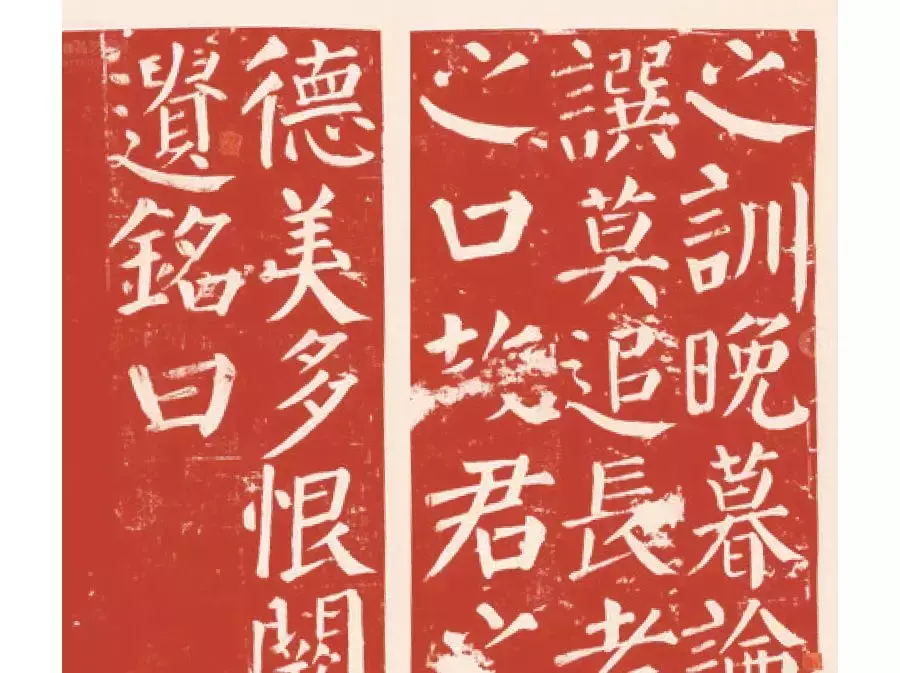 之訓晚暮論
譔莫追長老
之口故君之
德美多恨闕
遺銘曰